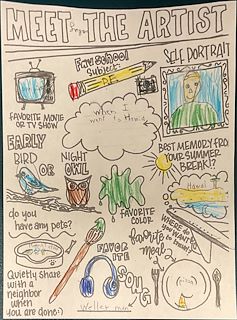 MEET THE ARTIST
Fav School
Subject:
P.E.
SELF PORTRAIT
FAVORITE MOVIE
OR TV SHOW
When I
went to Hawaii
EARLY
BIRD
OR
NIGHT
OWL
BEST MEMORY FROM
YOUR SUMMER
BREAK!?
Hawaii
do you
have any pets?
FAVORITE
COLOR
WHERE DO
YOU WANT
TO travel?
Quietly share
with a
neighbor
when
you are done:)
FAVORITE
SONG
favorite
meal
Weller man